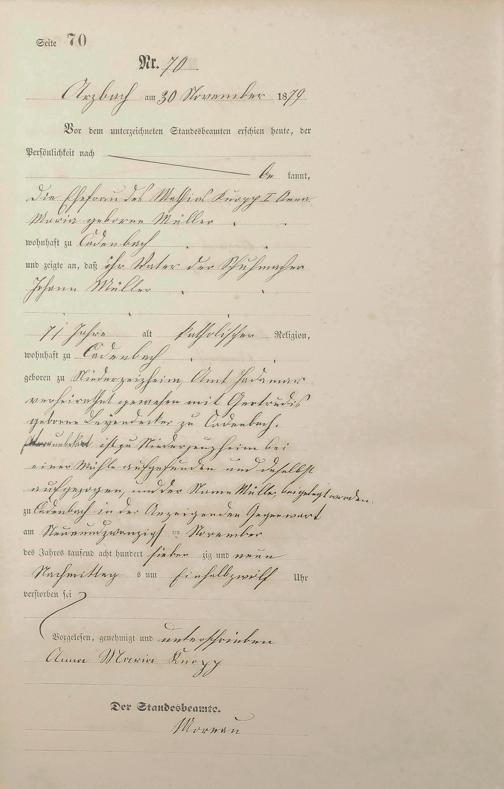 Seite 70
Nr. 70
Arzbach am 30 November 1879
Vor dem unterzeichneten Standesbeamten erschien heute, der
Persönlichkeit nach
be kannt,
die Ehefrau des Mathias Knopp I Anna
Maria geborne Müller
wohnhaft zu Cadenbach
und zeigte an, daß ihr Vater der Schuhmacher
Johann Müller
71 Jahre alt katholischer Religion,
wohnhaft zu Cadenbach
geboren zu Niederzeuzheim, Amt Hadamar
verheirathet gewesen mit Gertrudis
geborne Leyendecker zu Cadenbach.
ist zu Niederzeuzheim bei
einer Mühle aufgefunden und daselbst
aufgezogen, und der Name Müller beigelegt worden.
zu Cadenbach in der Anzeigenden Gegenwart
am Neunundzwanzigsten November
des Jahres tausend acht hundert sieben zig und neun
Nachmittag s um Einhalbzwölf Uhr
verstorben sei
Vorgelesen, genehmigt und unterschrieben
Anna Maria Knopp
Der Standesbeamte.
Moreau